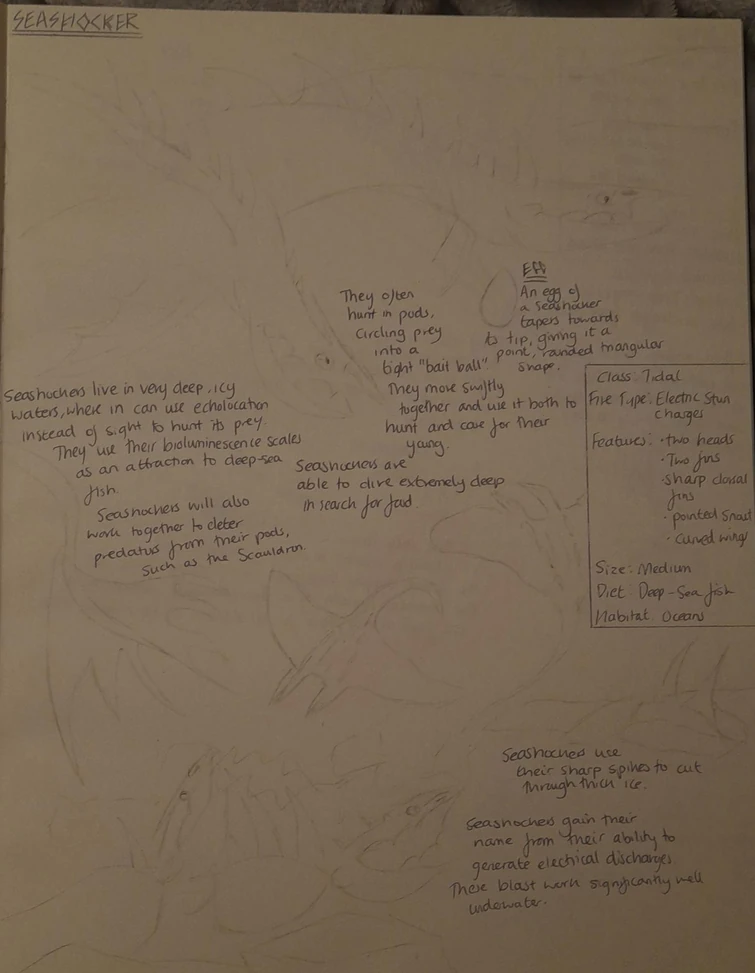 SEASHOCKER
They often
hunt in pods,
Circling prey
into a
tight "bait ball".
They move swiftly
together and use it both to
hunt and care for their
young.
Egg
An egg of
a Seashocker
tapers towards
its tip, giving it a
point, rounded triangular
shape.
Class: Tidal
Fire Type: Electric Stun
Charges
Features: • two heads
• Two fins
• sharp dorsal
fins
• pointed snout
• curved wings
Size: Medium
Diet: Deep-Sea fish
Habitat: Oceans
Seashockers live in very deep, icy
waters, where in can use echolocation
instead of sight to hunt its prey.
They use their bioluminescence scales
as an attraction to deep-sea
fish.
Seashockers will also
work together to deter
predators from their pods,
such as the Scauldron.
Seashockers are
able to dive extremely deep
in search for food.
Seashockers use
their sharp spikes to cut
through thick ice.
Seashockers gain their
name from their ability to
generate electrical discharges.
These blast work significantly well
underwater.